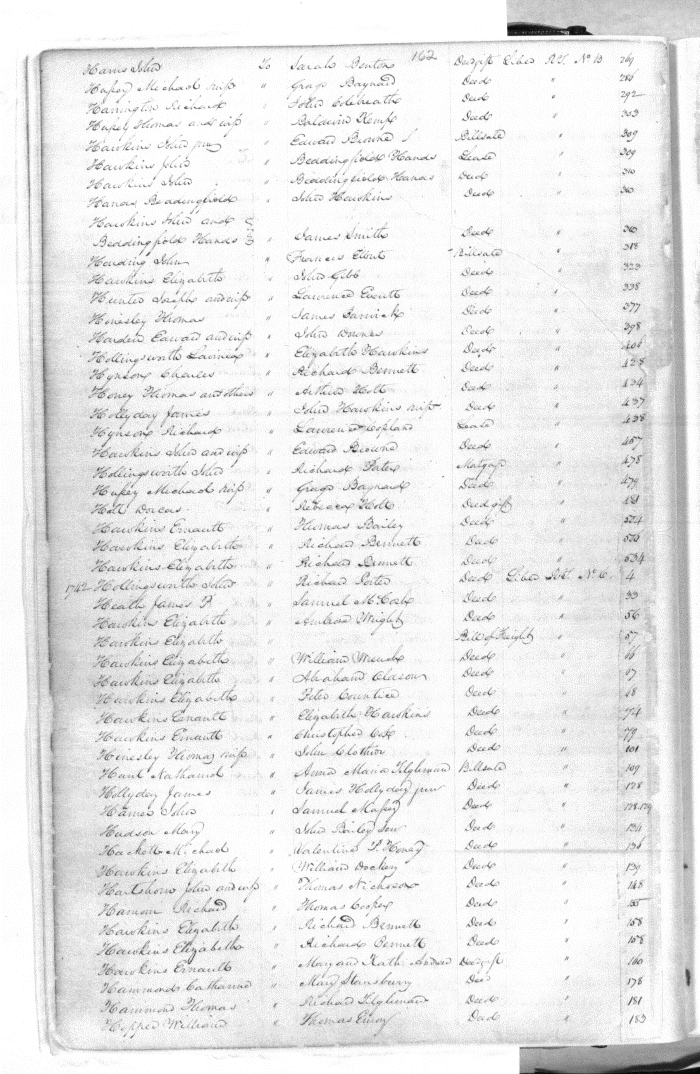 162
Harris John To Sarah Benton Deed gift Liber R.T. No B 269
Michael " Grage Baynard Deed " 286
Harrington Richard " John Deed " 292
Thomas and wife " Baldwin Kemp Deed " 303
Hawkins John " Edward Browne Billsale " 309
Hawkins John " Beddingfield Hands Lease " 309
Hawkins John " Beddingfield Hands Deed " 310
Hands Beddingfield " John Hawkins Deed " 310
Hawkins John and
Beddingfield Hands " James Smith Deed "
Harding John " Francis Billsale " 318
Hawkins Elizabeth " John Gibb Deed " 323
Hunter Joseph and wife " Lawrence Everett Deed " 338
Hinesley Thomas " James Deed " 377
Harden Edward and wife " John Downes Deed " 398
Hollingsworth " Elizabeth Hawkins Deed " 401
Hynson Charles " Richard Bennett Deed " 428
Honey Thomas and others " Arthur Holt Deed " 434
Hollyday James " John Hawkins Deed " 437
Hynson Richard " Lawrence Copland Lease " 438
Hawkins John and wife " Edward Browne Deed " 457
Hollingsworth John " Richard Mortgage " 478
Michael " Grage Baynard Deed " 479
Holt Dorcas " Rebecca Holt Deed gift " 481
Hawkins Ernault " Thomas Bailey Deed " 524
Hawkins Elizabeth " Richard Bennett Deed "
Hawkins Elizabeth " Richard Bennett Deed " 534
1742 Hollingsworth John " Richard Porter Deed Liber No C. 4
Heath James P " Samuel Deed " 33
Hawkins Elizabeth " Ambrose Wright Deed " 56
Hawkins Elizabeth " Bill of Freight " 57
Hawkins Elizabeth " William Deed " 66
Hawkins Elizabeth " Abraham Deed " 67
Hawkins Elizabeth " Peter Countice Deed " 68
Hawkins Ernault " Elizabeth Hawkins Deed " 74
Hawkins Ernault " Christopher Cox Deed " 79
Hinesley Thomas " John Clothier Deed " 101
Nathaniel " Anna Maria Tilghman Billsale " 109
Hollyday James " James Hollyday Deed " 128
John " Samuel Deed " 128.129
Hadson Mary " John Bailey Deed " 134
Hackett Michael " Valentine T Honey Deed " 136
Hawkins Elizabeth " William Dockery Deed " 139
Hartshorn John and wife " Thomas Nicholson Deed " 148
Richard " Thomas Cooper Deed " 155
Hawkins Elizabeth " Richard Bennett Deed " 158
Hawkins Elizabeth " Richard Bennett Deed " 158
Hawkins Ernault " Mary and Kath: Deed gift " 160
Hammonds Catharine " Mary Stansbury Deed " 178
Hammond Thomas " Richard Tilghman Deed " 181
Hopper William " Thomas Emory Deed " 183